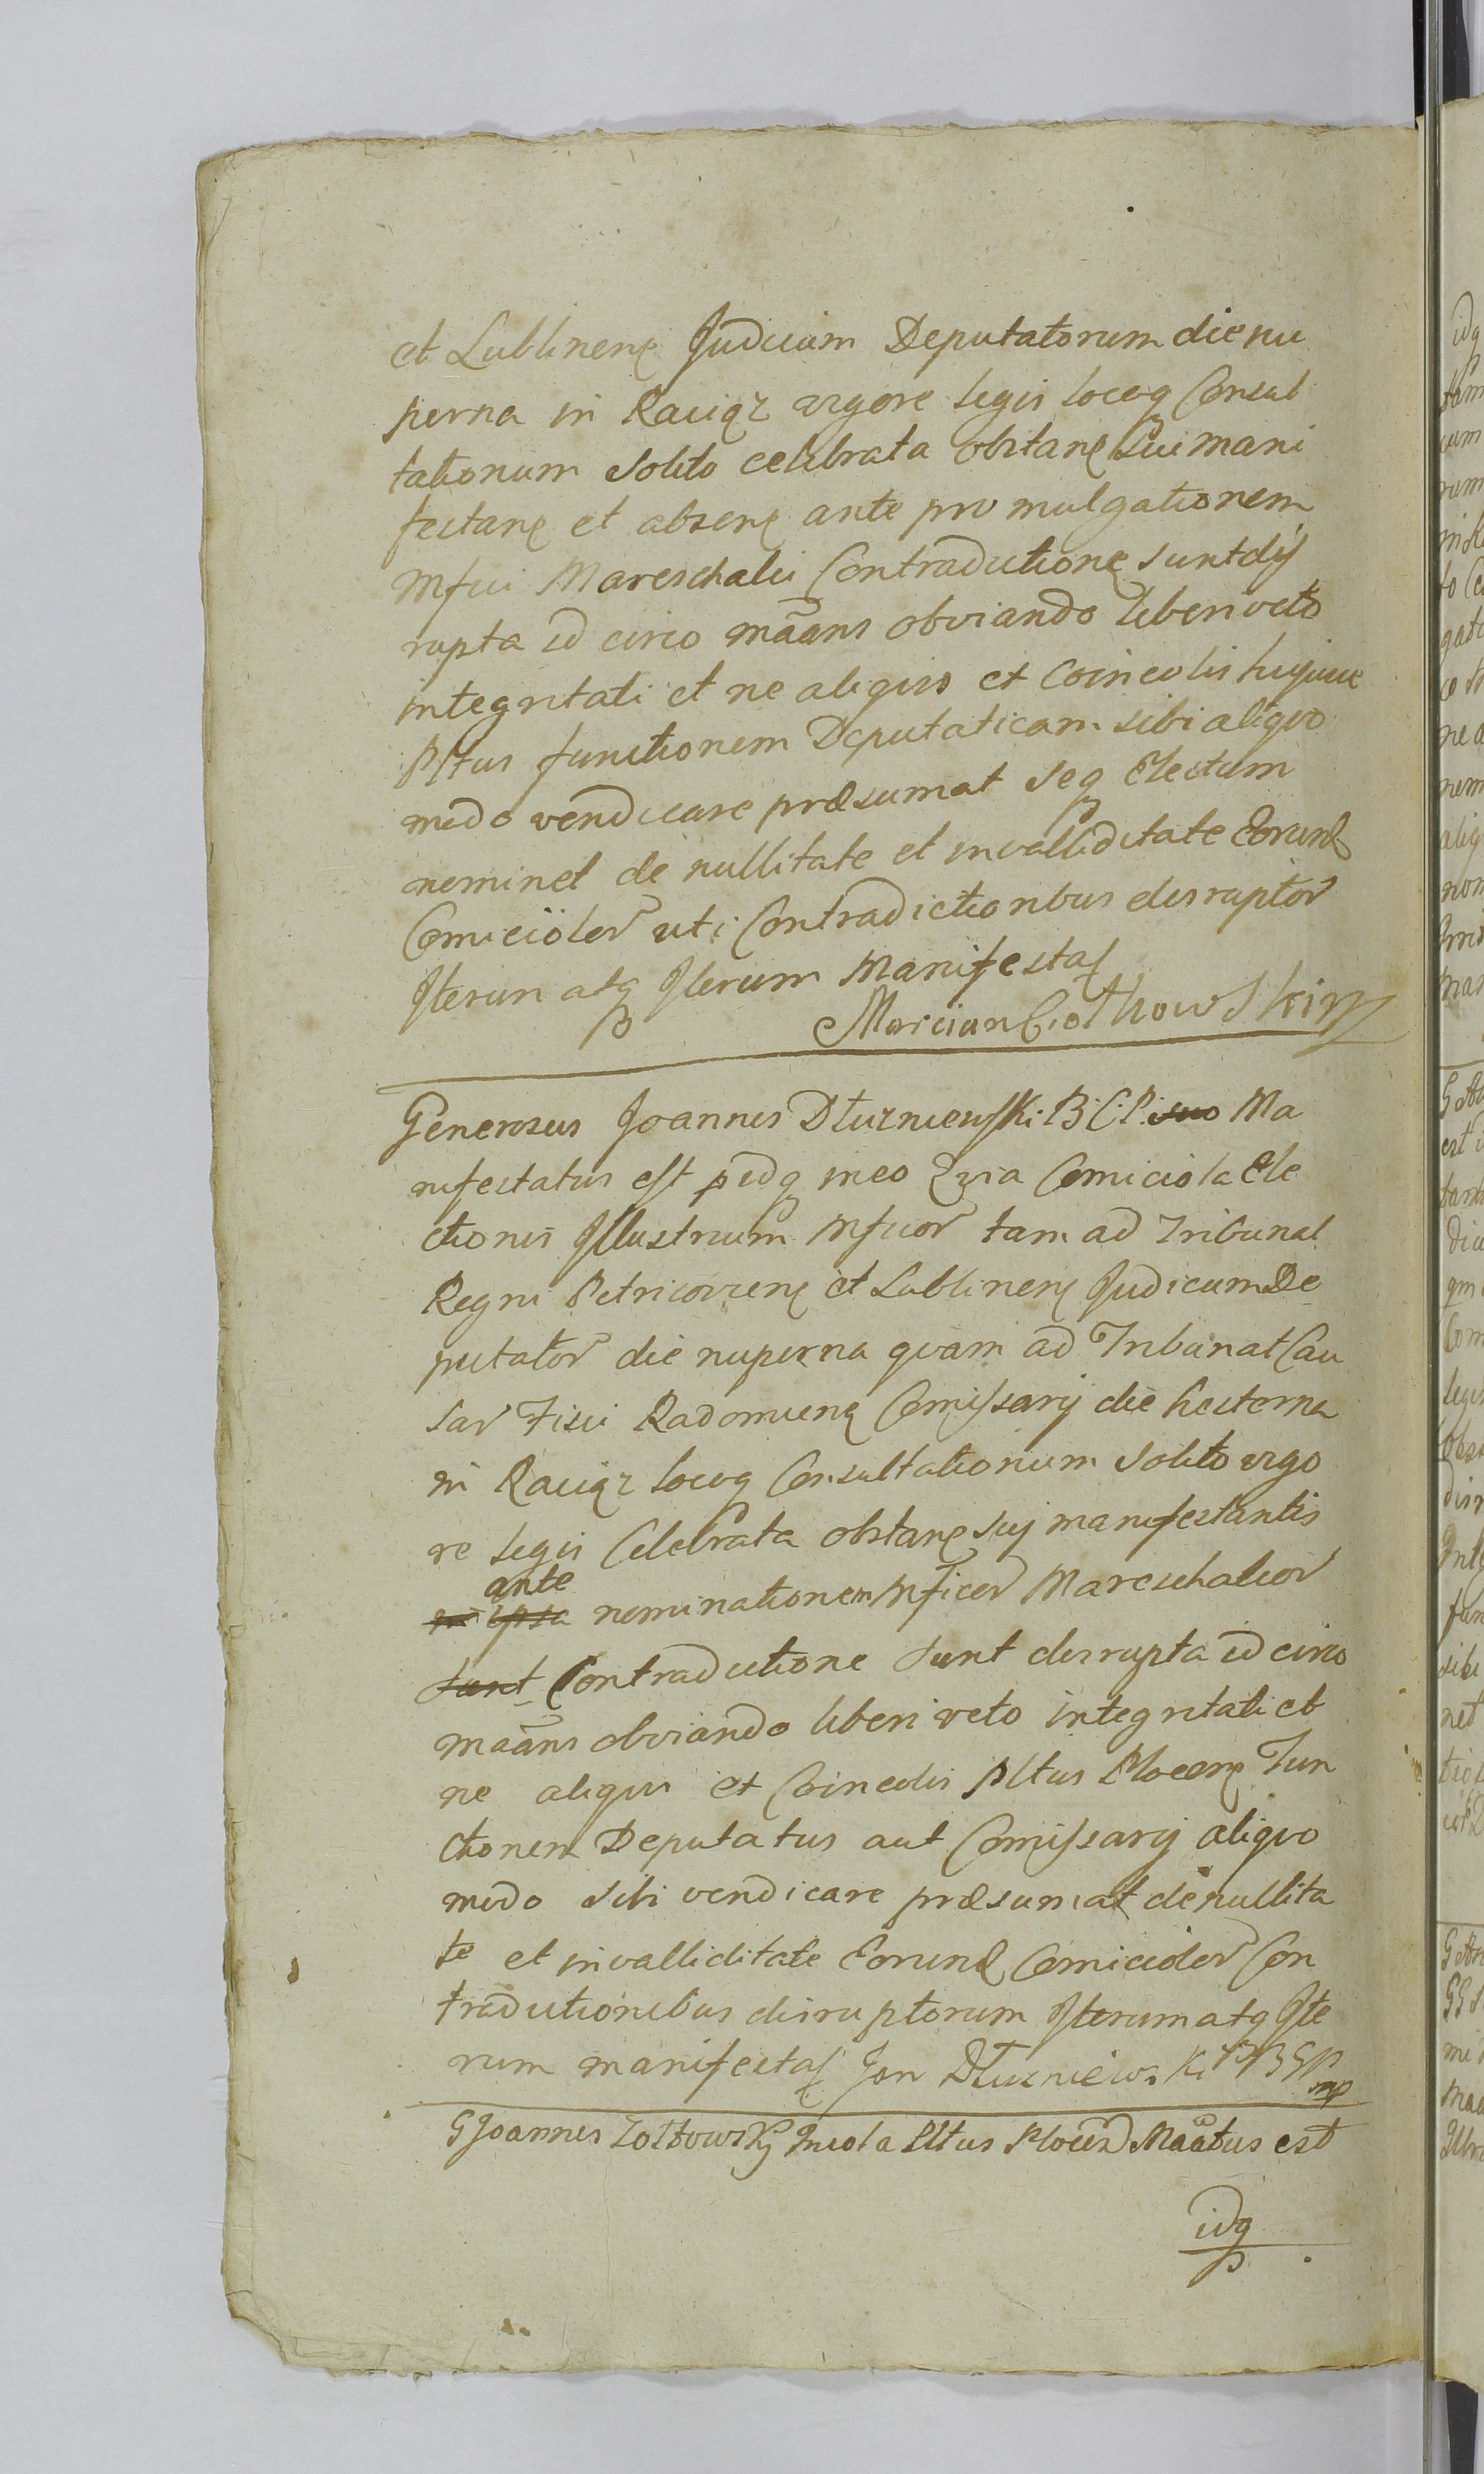 et Lublinens Judicum Deputatorum die nu
perna in Raciąz vigore legis locoq Consul
tationum solito celebrata obstane sui mani
festane et absens ante pro mulgationem
Mfici Mareschalii Contradictione sunt dis
rupta id circo mãans obviando liberi veto
integritati et ne aliquis et Coincolis hujusce
Pltus functionem Deputaticam sibi aliquo
modo vendicare præsumat seq Electum
neminet de nullitate et invalliditate Eorund
Comiciolor uti Contradictionibus disruptor
Iterum atq Iterum Manifestat
Marcian
Generosus Joannes Dłuzniewski B: C: P: suo Ma
nifestatus est pidq ineo Quia Comiciola Ele
ctionis Illustrium Mficor tam ad Tribunal
Regni Petricoviens et Lublinens Judicum De
putator die nuperna quam ad Tribunal Cau
sar Fisci Radomiens Comissarij die hesterna
in Raciąz locoq Consultationum solito vigo
re legis Celebrata obstane suj manifestantis
ante
in ipsa nominationem Mficor Mareschalior
sunt Contradictione sunt disrupta id circo
mãans obviando liberi veto integritati et
ne aliquis et Coincolis Pltus Plocens Fun
ctionem Deputatus aut Comissarij aliquo
modo sibi vendicare præsumat de nullita
te et invalliditate Eorund Comiciolor Con
tradictionibus disruptorum Iterum atq Ite
rum manifestat Jan Dłuzniewski
mp
G Joannes Zołtowskj Incola Pltus Plocen Maatus est
idq